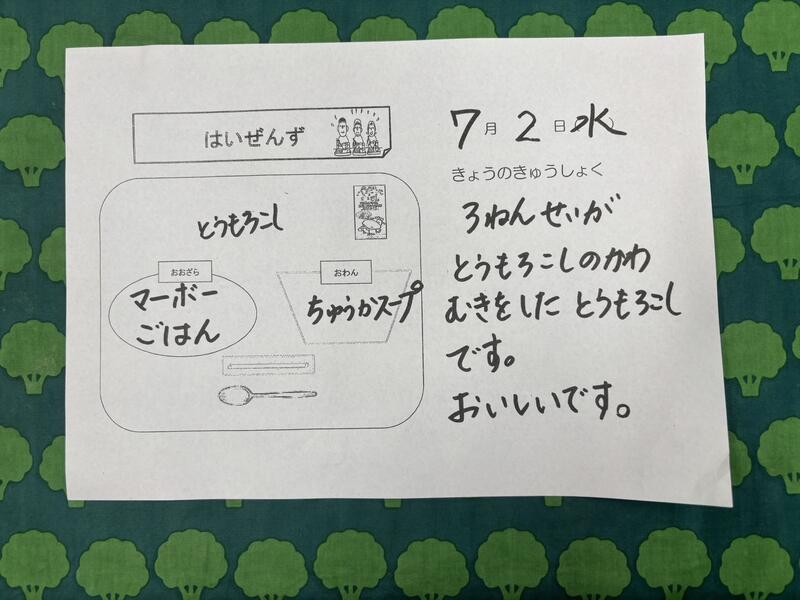 はいぜんず
とうもろこし
おおざら
マーボー
ごはん
おわん
ちゅうかスープ
7月2日(水)
きょうのきゅうしょく
3ねんせいが
とうもろこしのかわ
むきをしたとうもろこし
です。
おいしいです。